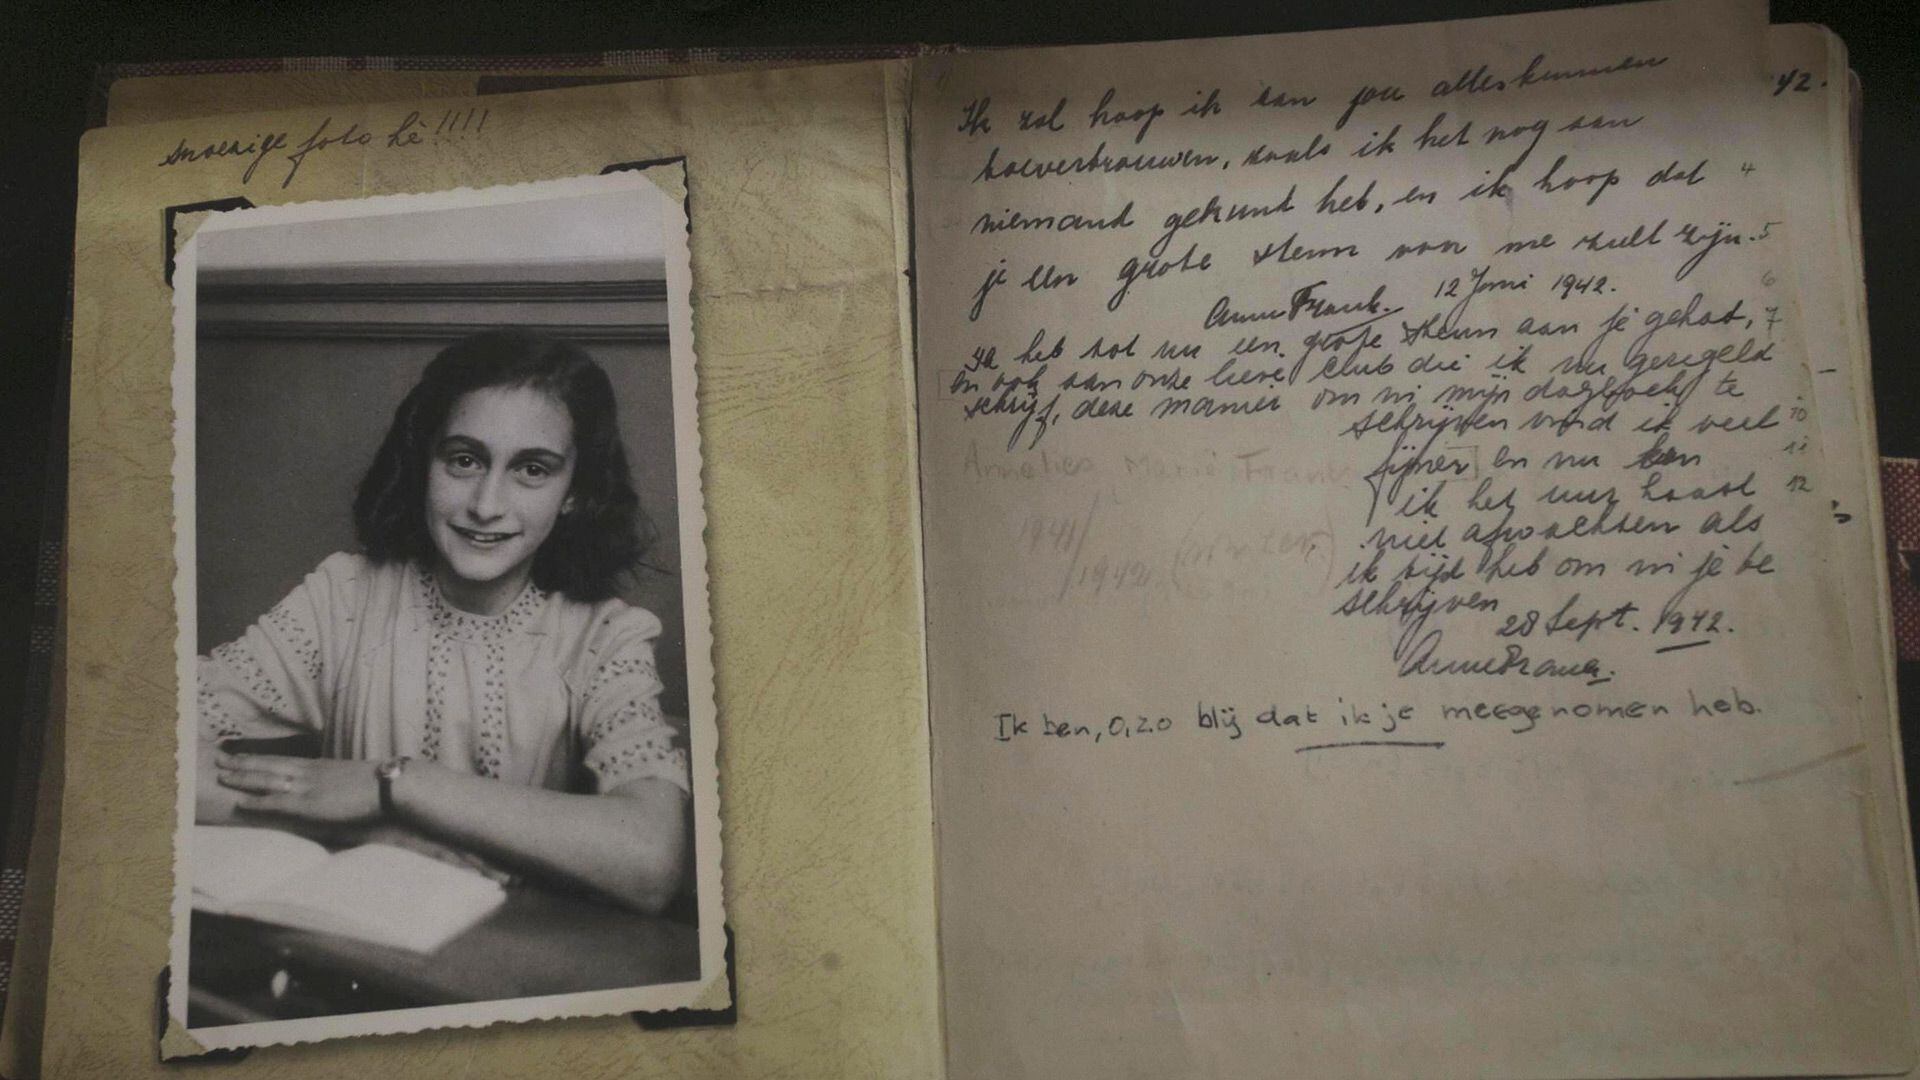 snoezige foto hè!!!!
42.
Ik zal hoop ik aan jou alles kunnen
toevertrouwen, zoals ik het nog aan
niemand gekund heb, en ik hoop dat 4
je een grote steun van me zult zijn. 5
Anne Frank. 12 Juni 1942. 6
Ik heb tot nu een grote steun aan je gehad, 7
en ook aan onze lieve club die ik nu geregeld
schrijf, deze manier om in mijn dagboek te
schrijven vind ik veel 10
fijner en nu kan 11
ik het uur haast 12
niet afwachten als
ik tijd heb om in je te
schrijven
28 Sept. 1942.
Anne Frank.
Annelies Marie Frank
1941/
/1942.
Ik ben, o, zo blij dat ik je meegenomen heb.